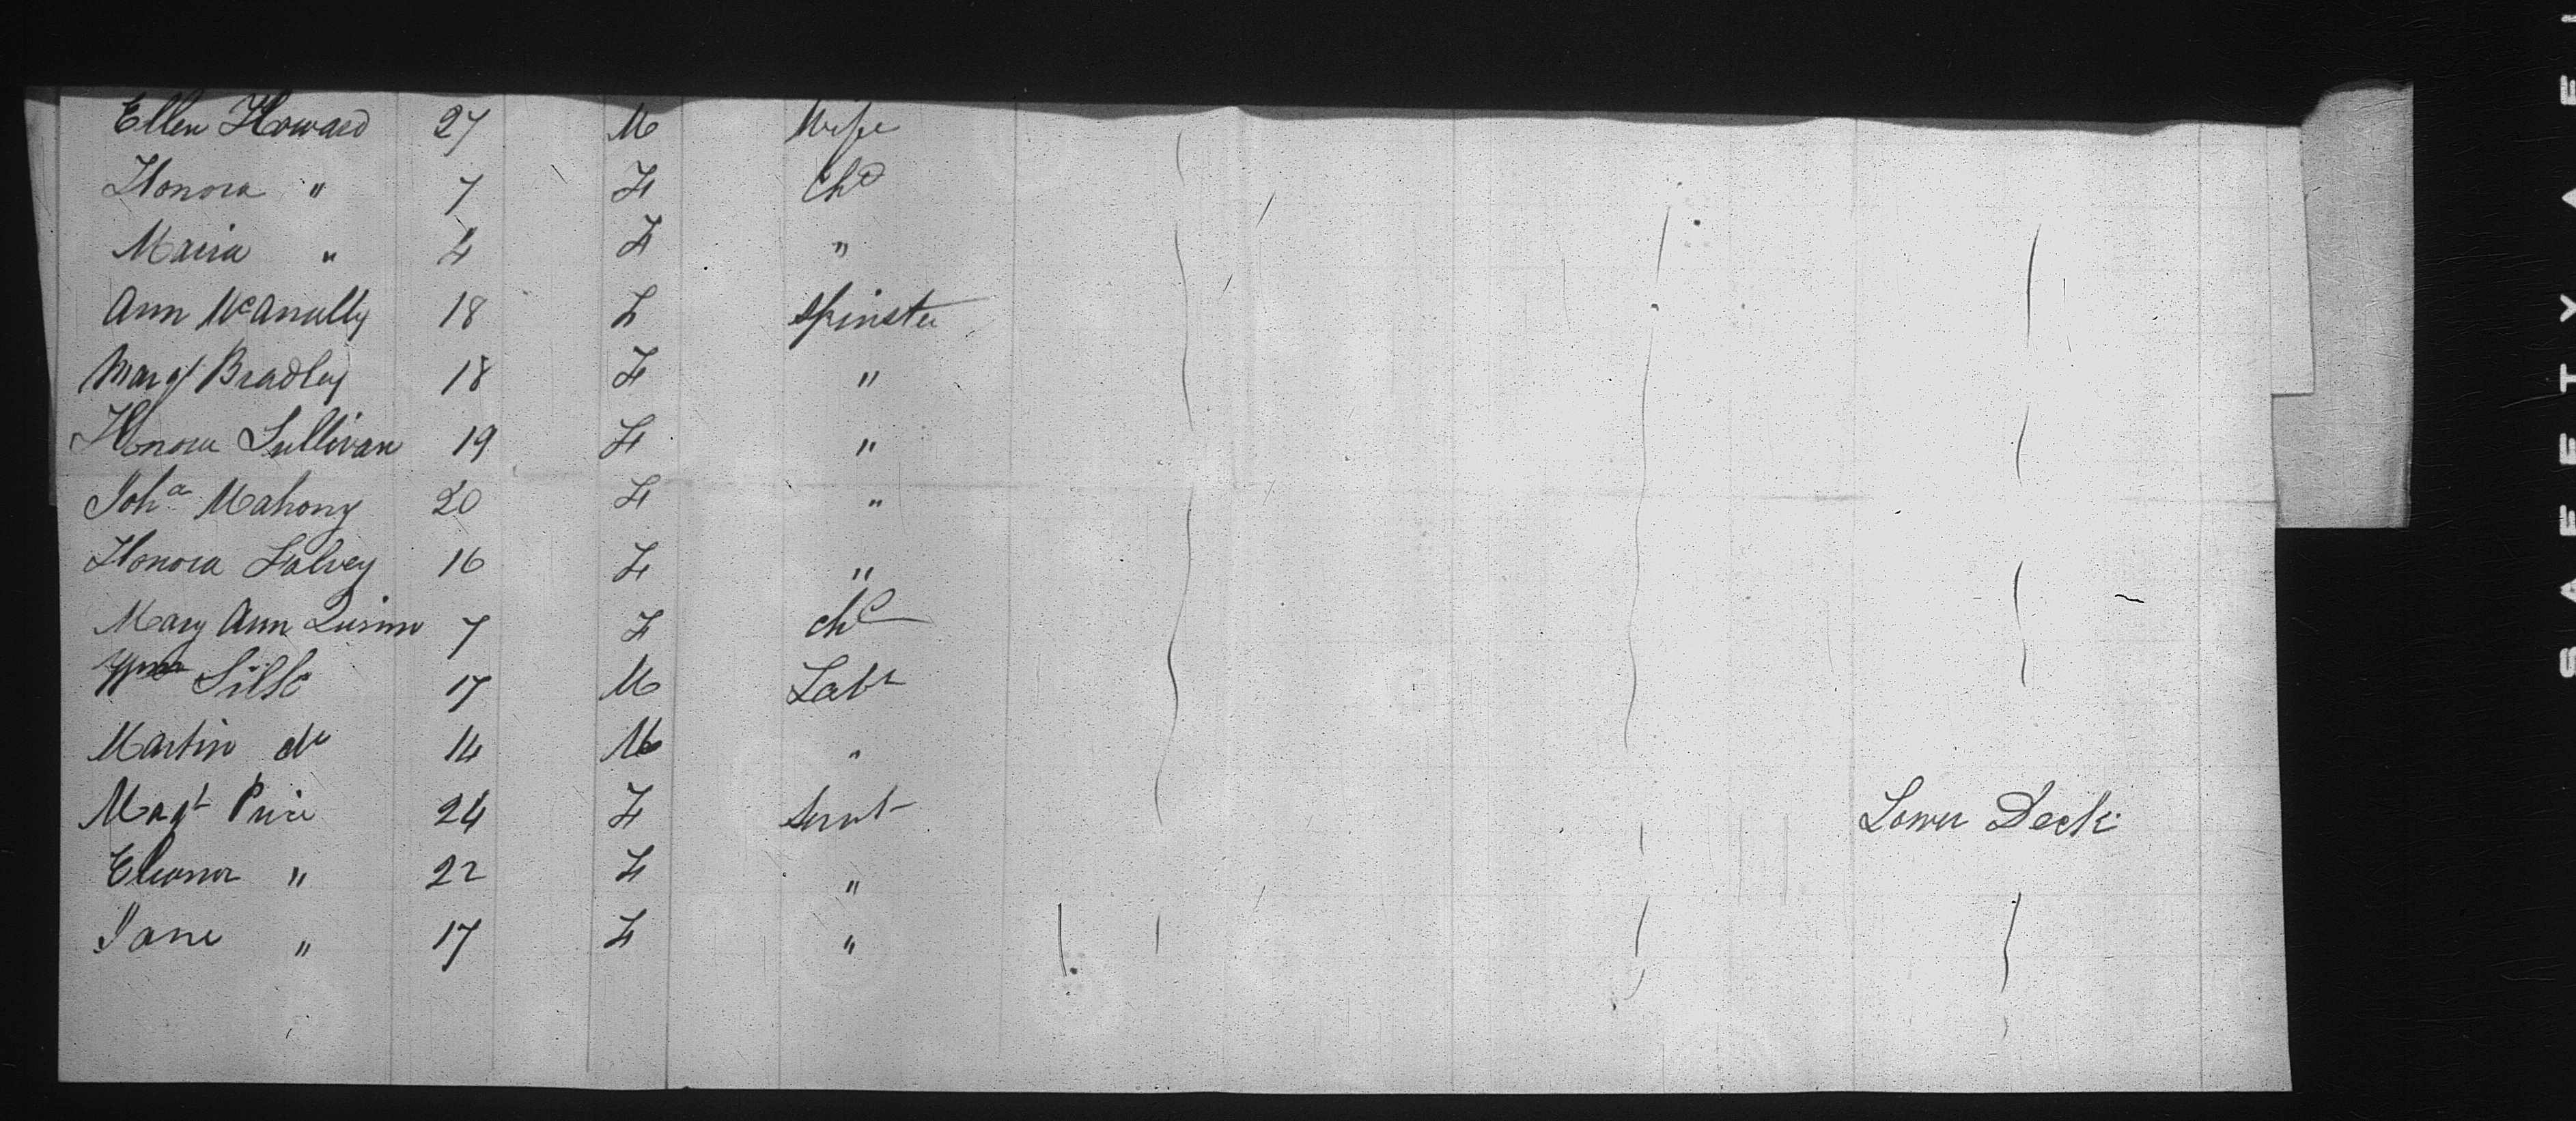 Ellen Howard 27 M Wife
Honora " 7 F Chd
Maria " 4 F "
Ann McAnulty 18 F Spinster
Margt Bradley 18 F "
Honora Sullivan 19 F "
Joha Mahony 20 F "
Honora Falvey 16 F "
Mary Ann Quinn 7 F chd
Wm 17 M Labr
Martin do 14 M "
Magt Price 24 F Servt Lower Deck
Eleanor " 22 F "
Jane " 17 F "
SAFETY